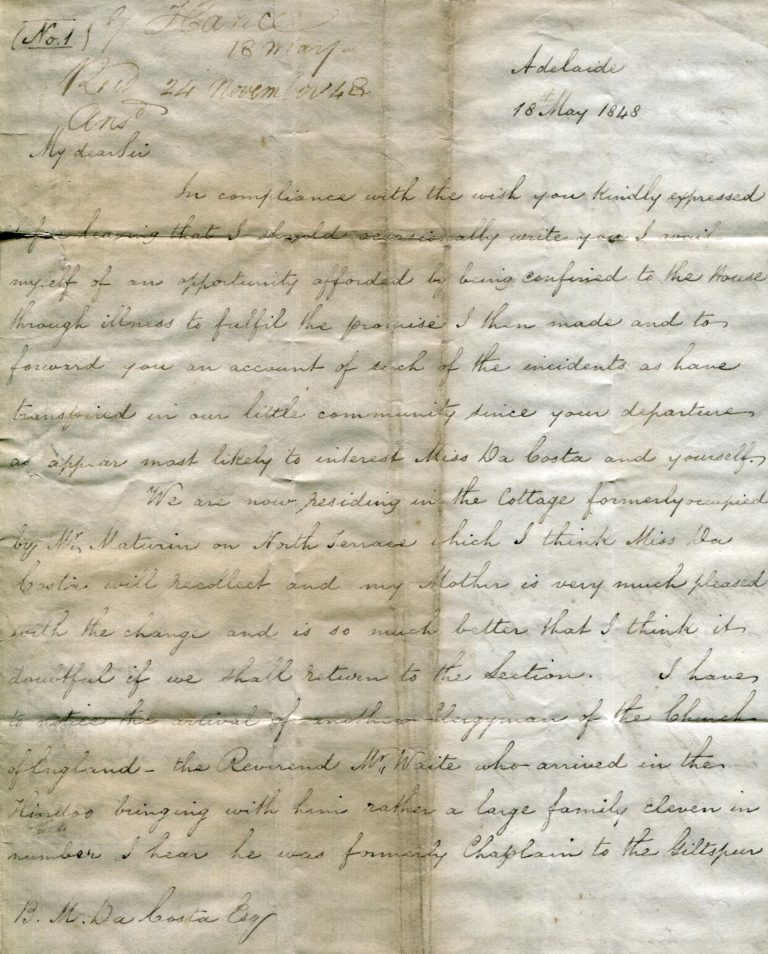 (No. 1) G Hance
18 May
Recd 24 November 48
Ansd
Adelaide
18th May 1848
My dear Sir
In compliance with the wish you kindly expressed
before leaving that I should occasionally write you I avail
myself of an opportunity afforded by being confined to the House
through illness to fulfil the promise I then made and to
forward you an account of such of the incidents as have
transpired in our little community since your departure
as appear most likely to interest Miss Da Costa and yourself.
We are now residing in the Cottage formerly occupied
by Mr. Maturin on North Terrace which I think Miss Da
Costa will recollect and my Mother is very much pleased
with the change and is so much better that I think it
doubtful if we shall return to the Section. I have
to notice the arrival of another Clergyman of the Church
of England - the Reverend Mr. Waite who arrived in the
Hindoo bringing with him rather a large family eleven in
number I hear he was formerly Chaplain to the Giltspur
B. M. Da Costa Esq